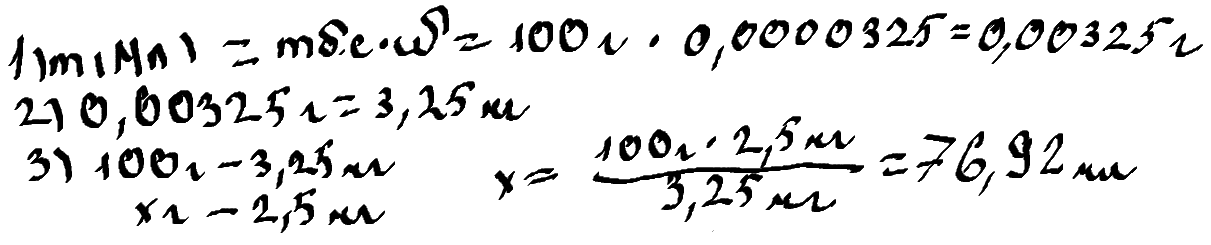 1) m(Mn) = mб.с · ω = 100г · 0,0000325 = 0,00325г
2) 0,00325г = 3,25 мг
3) 100г – 3,25мг x = 100г · 2,5мг / 3,25мг = 76,92 мг
xг – 2,5мг